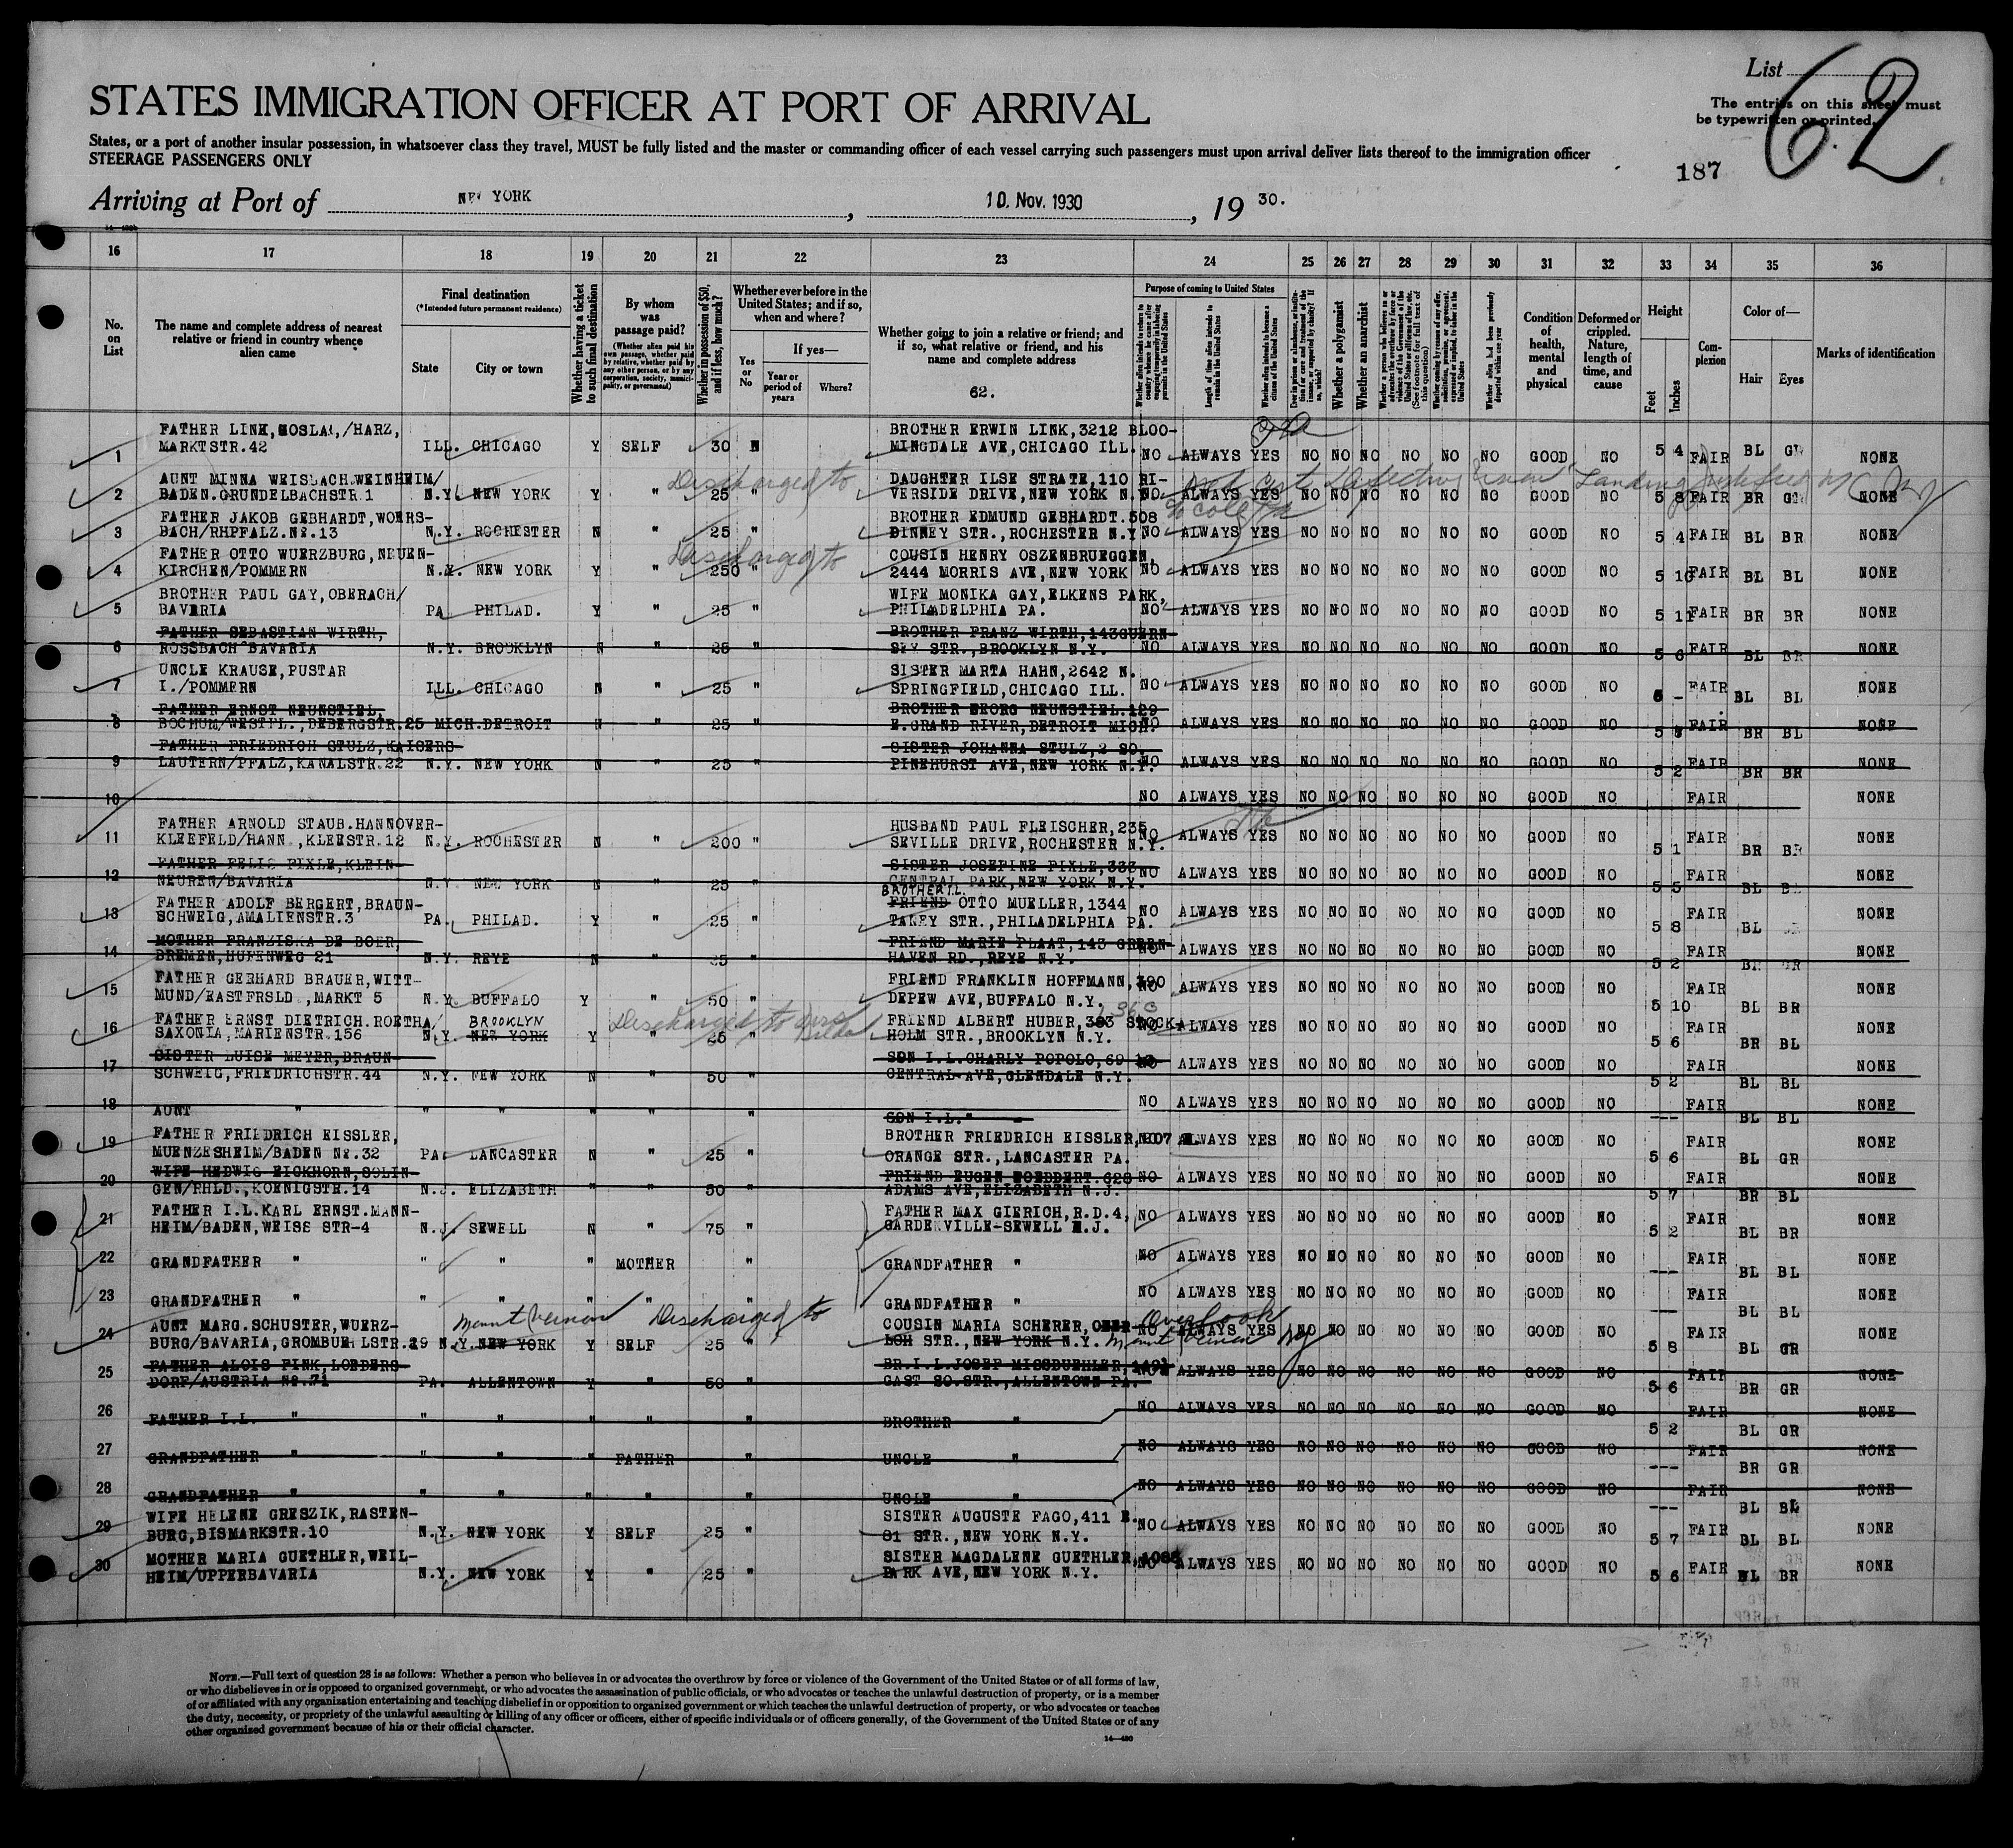 List 62
The entries on this sheet must
be typewritten or printed.
STATES IMMIGRATION OFFICER AT PORT OF ARRIVAL
States, or a port of another insular possession, in whatsoever class they travel, MUST be fully listed and the master or commanding officer of each vessel carrying such passengers must upon arrival deliver lists thereof to the immigration officer
STEERAGE PASSENGERS ONLY
187
Arriving at Port of NEW YORK, 10. Nov. 1930, 19 30.
16 17 18 19 20 21 22 23 24 25 26 27 28 29 30 31 32 33 34 35 36
No. on List
The name and complete address of nearest relative or friend in country whence alien came
Final destination
(*Intended future permanent residence)
State City or town
Whether having a ticket to such final destination
By whom was passage paid?
(Whether alien paid his own passage, whether paid by relative, whether paid by any other person, or by any corporation, society, municipality, or government)
Whether in possession of $50, and if less, how much?
Whether ever before in the United States; and if so, when and where?
Yes or No
If yes—
Year or period of years Where?
Whether going to join a relative or friend; and if so, what relative or friend, and his name and complete address
62.
Purpose of coming to United States
Length of time alien intends to remain in the United States
Whether alien intends to become a citizen of the United States
Whether a polygamist
Whether an anarchist
Condition of health, mental and physical
Deformed or crippled. Nature, length of time, and cause
Height
Feet Inches
Complexion
Color of—
Hair Eyes
Marks of identification
FATHER LINK, GOSLAR,/HARZ, BROTHER ERWIN LINK,3212 BLOO-
1 MARKTSTR.42 ILL. CHICAGO Y SELF 30 N MINGDALE AVE,CHICAGO ILL. NO ALWAYS YES NO NO NO NO NO NO GOOD NO 5 4 FAIR BL GR NONE
AUNT MINNA WEISBACH.WEINHEIM/ Discharged to DAUGHTER ILSE STRATE,110 RI-
2 BADEN.GRUNDELBACHSTR.1 N.Y. NEW YORK Y " 25 " VERSIDE DRIVE,NEW YORK N.Y. NO ALWAYS YES NO NO NO NO NO NO GOOD NO 5 8 FAIR BR GR NONE
FATHER JAKOB GEBHARDT,WOERS- BROTHER EDMUND GEBHARDT.508
3 BACH/RHPFALZ.NR.13 N.Y. ROCHESTER N " 25 " BINNEY STR.,ROCHESTER N.Y. NO ALWAYS YES NO NO NO NO NO NO GOOD NO 5 4 FAIR BL BR NONE
FATHER OTTO WUERZBURG,NEUEN- Discharged to COUSIN HENRY OSZENBRUEGGEN,
4 KIRCHEN/POMMERN N.Y. NEW YORK Y " 250 " 2444 MORRIS AVE,NEW YORK NO ALWAYS YES NO NO NO NO NO NO GOOD NO 5 10 FAIR BL BL NONE
BROTHER PAUL GAY,OBERACH/ WIFE MONIKA GAY,ELKENS PARK,
5 BAVARIA PA. PHILAD. Y " 25 " PHILADELPHIA PA. NO ALWAYS YES NO NO NO NO NO NO GOOD NO 5 11 FAIR BR BR NONE
FATHER SEBASTIAN WIRTH, BROTHER FRANZ WIRTH,143GUERN-
6 ROSSBACH BAVARIA N.Y. BROOKLYN N " 25 " SEY STR.,BROOKLYN N.Y. NO ALWAYS YES NO NO NO NO NO NO GOOD NO 5 6 FAIR BL BR NONE
UNCLE KRAUSE,PUSTAR SISTER MARTA HAHN,2642 N.
7 I./POMMERN ILL. CHICAGO N " 25 " SPRINGFIELD,CHICAGO ILL. NO ALWAYS YES NO NO NO NO NO NO GOOD NO - FAIR BL BL NONE
FATHER ERNST NEUNSTIEL, BROTHER GEORG NEUNSTIEL.129
8 BOCHUM/WESTFL.,BEBERGSTR.25 MICH.DETROIT N " 25 " E.GRAND RIVER,DETROIT MICH. NO ALWAYS YES NO NO NO NO NO NO GOOD NO 5 FAIR BR BL NONE
FATHER FRIEDRICH STULZ,KAISERS- SISTER JOHANNA STULZ,2 SO.
9 LAUTERN/PFALZ,KANALSTR.22 N.Y. NEW YORK N " 25 " PINEHURST AVE,NEW YORK N.Y. NO ALWAYS YES NO NO NO NO NO NO GOOD NO 5 2 FAIR BR BR NONE
10 NO ALWAYS YES NO NO NO NO NO NO GOOD NO FAIR NONE
FATHER ARNOLD STAUB.HANNOVER- HUSBAND PAUL FLEISCHER,235
11 KLEEFELD/HANN.,KLEESTR.12 N.Y. ROCHESTER N " 200 " SEVILLE DRIVE,ROCHESTER N.Y. NO ALWAYS YES NO NO NO NO NO NO GOOD NO 5 1 FAIR BR BR NONE
FATHER FELIS PIXLE,KLEIN- SISTER JOSEPINE PIXLE,333
12 NEUREN/BAVARIA N.Y. NEW YORK N " 25 " CENTRAL PARK,NEW YORK N.Y. NO ALWAYS YES NO NO NO NO NO NO GOOD NO 5 5 FAIR BL NONE
FATHER ADOLF BERGERT,BRAUN- BROTHERIL. FRIEND OTTO MUELLER,1344
13 SCHWEIG,AMALIENSTR.3 PA. PHILAD. Y " 25 " TANEY STR.,PHILADELPHIA PA. NO ALWAYS YES NO NO NO NO NO NO GOOD NO 5 8 FAIR BL NONE
MOTHER FRANZISKA DE BOER, FRIEND MARIE PLAAT,143 GREEN-
14 BREMEN,HUFENWEG 21 N.Y. REYE N " 25 " HAVEN RD.,REYE N.Y. NO ALWAYS YES NO NO NO NO NO NO GOOD NO 5 2 FAIR BR GR NONE
FATHER GERHARD BRAUER,WITT- FRIEND FRANKLIN HOFFMANN,390
15 MUND/EASTFRSLD.,MARKT 5 N.Y. BUFFALO Y " 50 " DEPEW AVE,BUFFALO N.Y. NO ALWAYS YES NO NO NO NO NO NO GOOD NO 5 10 FAIR BL BR NONE
FATHER ERNST DIETRICH.ROETHA/ BROOKLYN Discharged to FRIEND ALBERT HUBER,383 STOCK-
16 SAXONIA,MARIENSTR.156 N.Y. NEW YORK Y " 25 " HOLM STR.,BROOKLYN N.Y. NO ALWAYS YES NO NO NO NO NO NO GOOD NO 5 6 FAIR BR BL NONE
SISTER LUISE MEYER,BRAUN- SON I.L.CHARLY POPOLO,69
17 SCHWEIG,FRIEDRICHSTR.44 N.Y. NEW YORK N " 50 " CENTRAL-AVE,GLENDALE N.Y. NO ALWAYS YES NO NO NO NO NO NO GOOD NO 5 2 FAIR BL BL NONE
18 AUNT " " " " " " SON I.L." NO ALWAYS YES NO NO NO NO NO NO GOOD NO --- FAIR BL BL NONE
FATHER FRIEDRICH EISSLER, BROTHER FRIEDRICH EISSLER,207
19 MUENZESHEIM/BADEN NR.32 PA. LANCASTER N " 25 " ORANGE STR.,LANCASTER PA. NO ALWAYS YES NO NO NO NO NO NO GOOD NO 5 6 FAIR BL GR NONE
WIFE HEDWIG EICKHORN,SOLIN- FRIEND EUGEN TOEDDERT.628
20 GEN/RHLD.,KOENIGSTR.14 N.J. ELIZABETH " " 50 " ADAMS AVE,ELIZABETH N.J. NO ALWAYS YES NO NO NO NO NO NO GOOD NO 5 7 FAIR BR BL NONE
FATHER I.L.KARL ERNST.MANN- FATHER MAX GIERICH,R.D.4,
21 HEIM/BADEN,WEISS STR-4 N.J. SEWELL N " 75 " GARDENVILLE-SEWELL N.J. NO ALWAYS YES NO NO NO NO NO NO GOOD NO 5 2 FAIR BL BR NONE
22 GRANDFATHER " " " " MOTHER " GRANDFATHER " NO ALWAYS YES NO NO NO NO NO NO GOOD NO --- FAIR BL BL NONE
23 GRANDFATHER " " " " " " GRANDFATHER " NO ALWAYS YES NO NO NO NO NO NO GOOD NO --- FAIR BL BL NONE
AUNT MARG.SCHUSTER,WUERZ- Mount Vernon Discharged to COUSIN MARIA SCHERER, Overlook
24 BURG/BAVARIA,GROMBUEHLSTR.29 N.Y. NEW YORK Y SELF 25 " STR.,NEW YORK N.Y. Mount Vernon NY NO ALWAYS YES NO NO NO NO NO NO GOOD NO 5 8 FAIR BL GR NONE
FATHER ALOIS PINK,LOEDERS- BR.I.L.JOSEF MISSBUEHLER,
25 DORF/AUSTRIA NR.71 PA. ALLENTOWN Y " 50 " EAST SO.STR.,ALLENTOWN PA. NO ALWAYS YES NO NO NO NO NO NO GOOD NO 5 6 FAIR BR GR NONE
26 FATHER I.L. " " " " " " BROTHER " NO ALWAYS YES NO NO NO NO NO NO GOOD NO 5 2 FAIR BL GR NONE
27 GRANDFATHER " " " " FATHER " UNCLE " NO ALWAYS YES NO NO NO NO NO NO GOOD NO --- FAIR BR GR NONE
28 GRANDFATHER " " " " " " UNCLE " NO ALWAYS YES NO NO NO NO NO NO GOOD NO --- FAIR BL BL NONE
WIFE HELENE GRESZIK,RASTEN- SISTER AUGUSTE FAGO,411 E.
29 BURG,BISMARKSTR.10 N.Y. NEW YORK Y SELF 25 " 81 STR.,NEW YORK N.Y. NO ALWAYS YES NO NO NO NO NO NO GOOD NO 5 7 FAIR BL BL NONE
MOTHER MARIA GUETHLER,WEIL- SISTER MAGDALENE GUETHLER,1088
30 HEIM/UPPERBAVARIA N.Y. NEW YORK Y " 25 " PARK AVE,NEW YORK N.Y. NO ALWAYS YES NO NO NO NO NO NO GOOD NO 5 6 FAIR BL BR NONE
NOTE.—Full text of question 28 is as follows: Whether a person who believes in or advocates the overthrow by force or violence of the Government of the United States or of all forms of law,
or who disbelieves in or is opposed to organized government, or who advocates the assassination of public officials, or who advocates or teaches the unlawful destruction of property, or is a member
of or affiliated with any organization entertaining and teaching disbelief in or opposition to organized government or which teaches the unlawful destruction of property, or who advocates or teaches
the duty, necessity, or propriety of the unlawful assaulting or killing of any officer or officers, either of specific individuals or of officers generally, of the Government of the United States or of any
other organized government because of his or their official character.
14—430